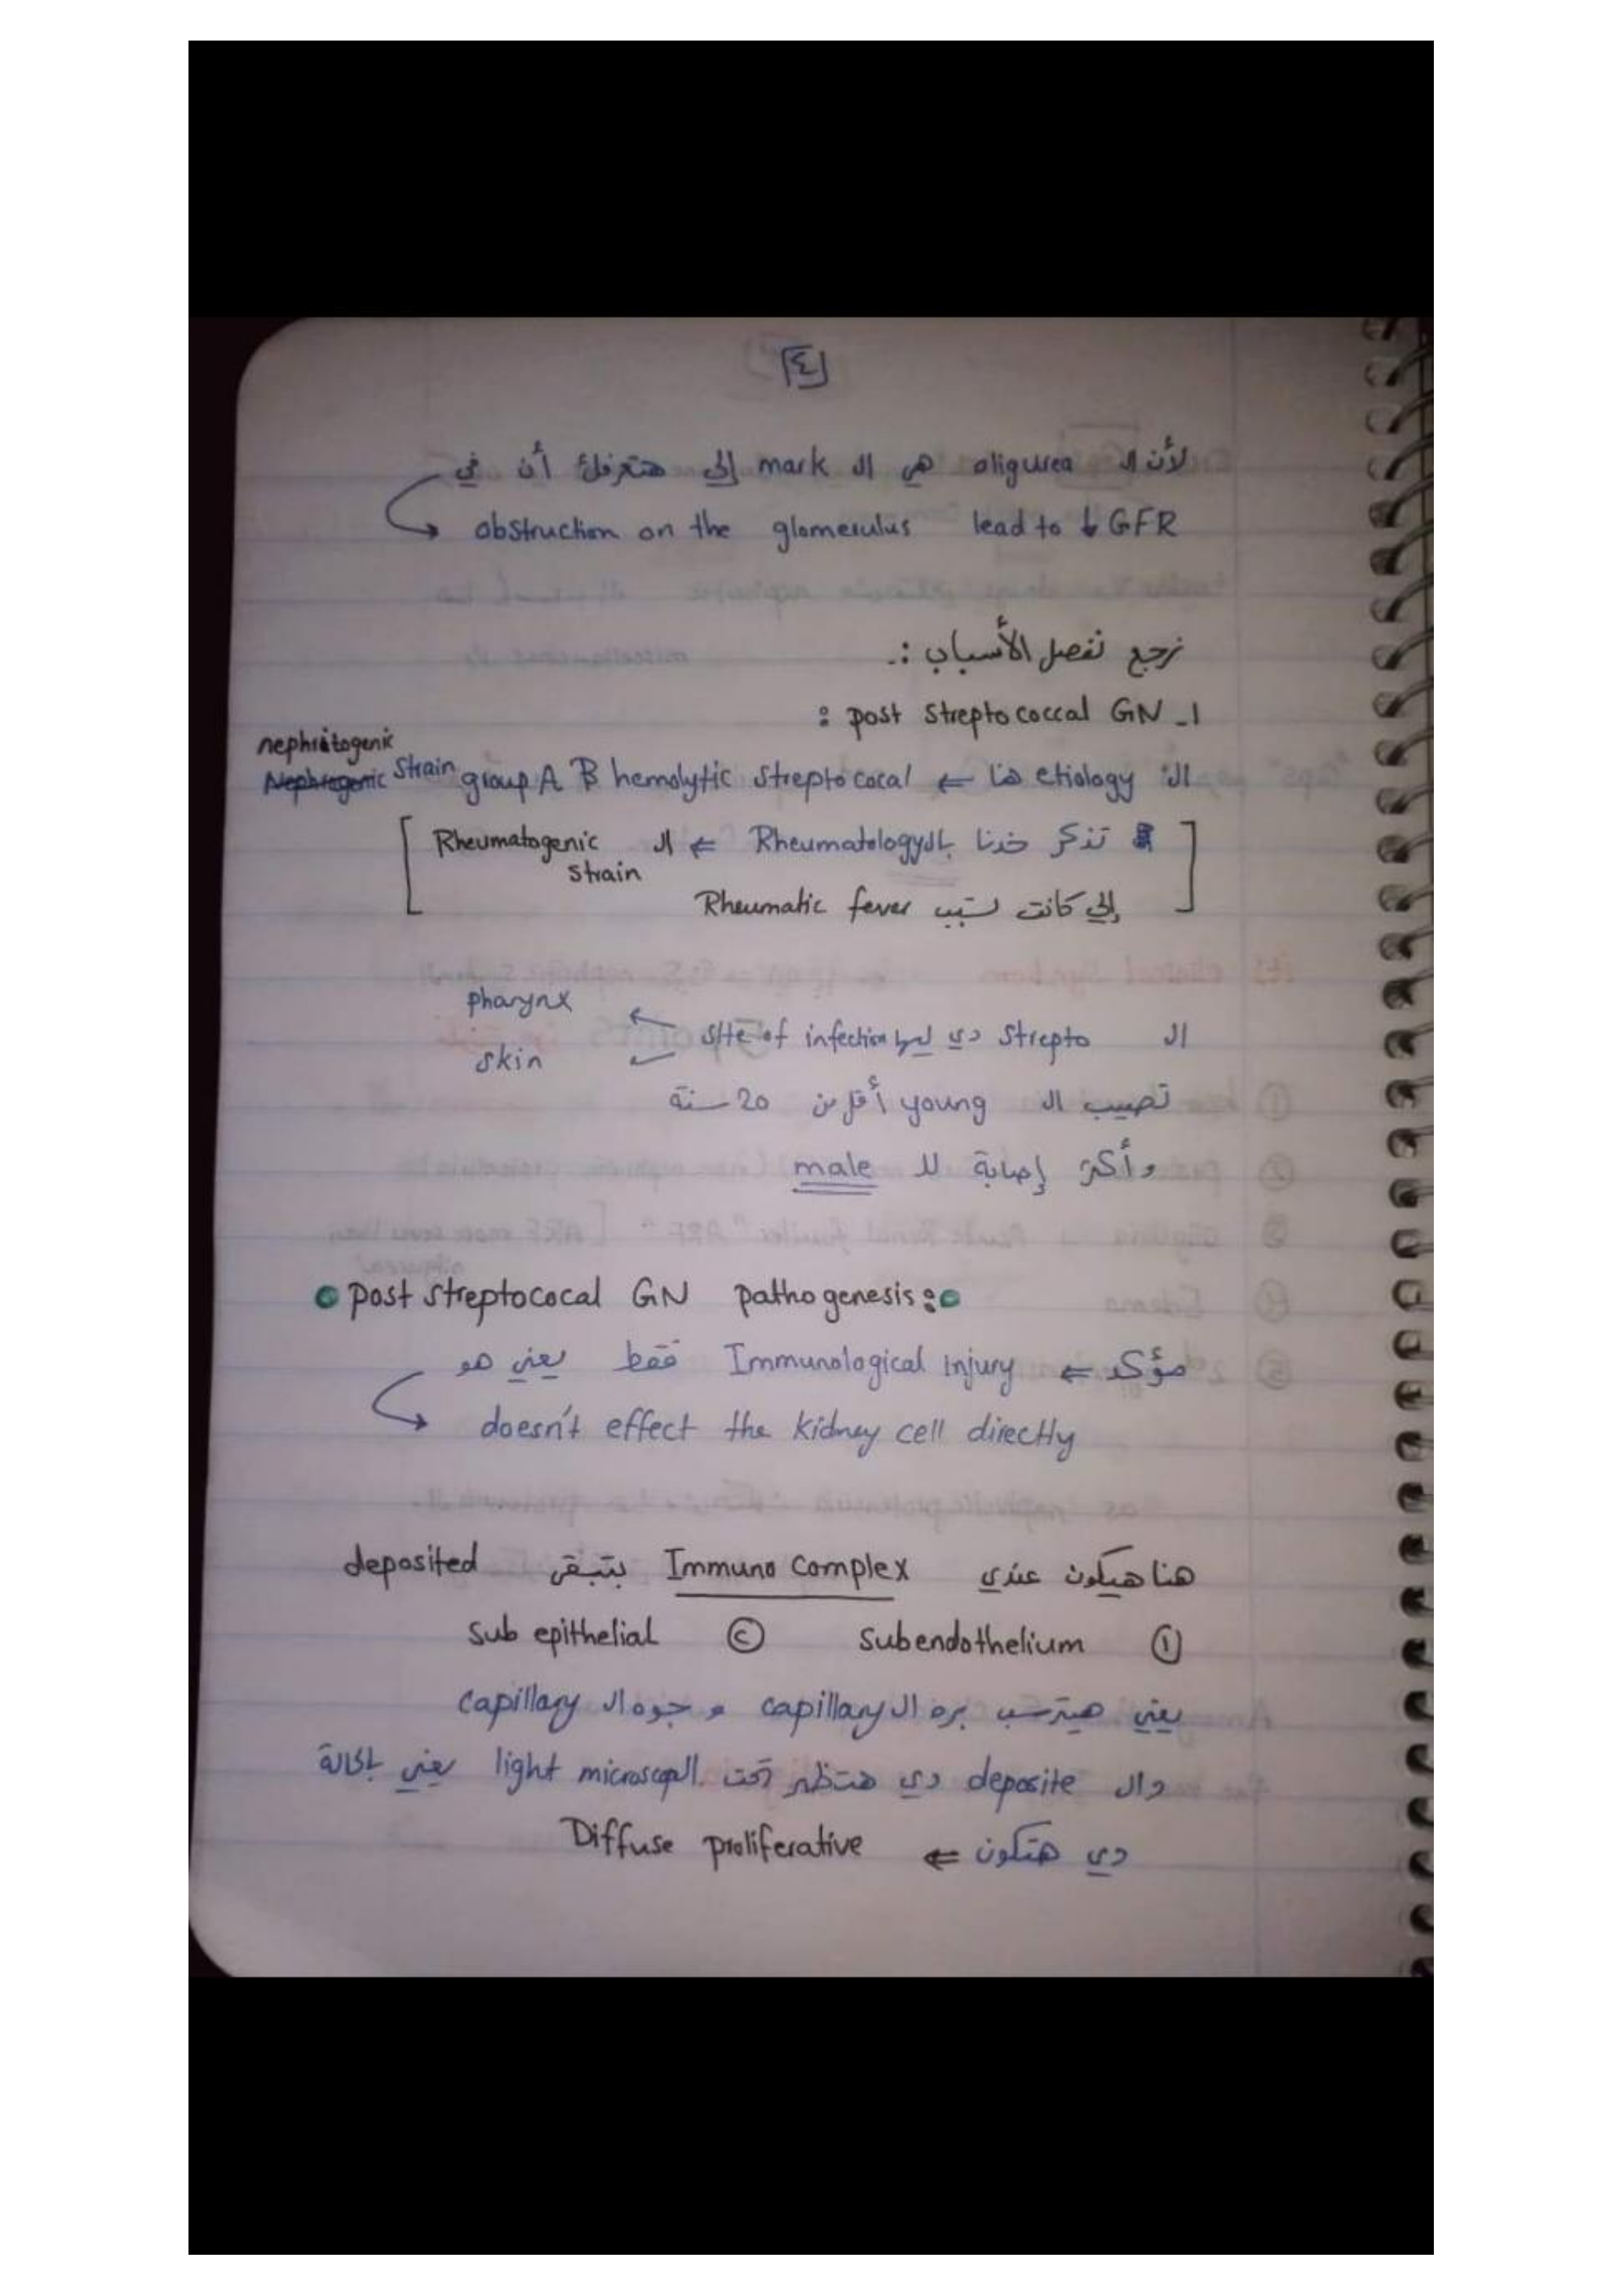 [٤]
لأن ال oligurea هي ال mark إلي هتعرفك أن في
obstruction on the glomerulus lead to ↓ GFR
نرجع نفصل الأسباب :.
١_ post streptococcal GN :
ال etiology هنا ← group A B hemolytic streptococal strain nephritogenic
[ تذكر خدنا بال Rheumatology ⇐ ال Rheumatogenic strain
إلي كانت تسبب Rheumatic fever ]
ال strepto دي ليها site of infection
pharynx
skin
تصيب ال young أقل من 20 سنة
وأكثر إصابة لل male
post streptococal GN pathogenesis :
مؤكد ⇐ Immunological injury فقط يعني هو
doesn't effect the kidney cell directly
هنا هيكون عندي Immuno complex بتبقى deposited
① subendothelium ② sub epithelial
يعني هيترسب بره ال capillary و جوه ال capillary
وال deposite دي هتظهر تحت ال light microscop يعني بالحالة
دي هتكون ⇐ Diffuse proliferative